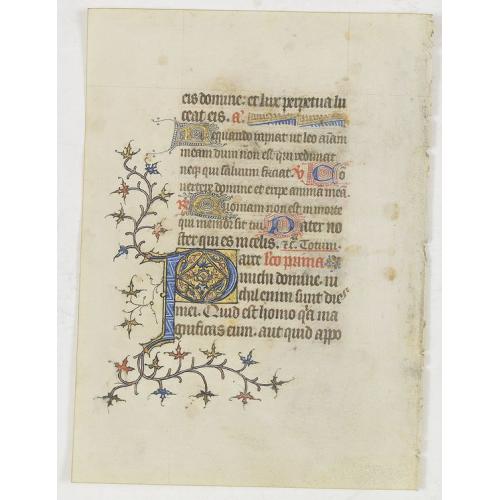 eis domine: et lux perpetua lu
ceat eis. a.
Nequando rapiat ut leo aīam
meam dum non est qui redimat
neqʒ qui saluum faciat. V Co
uertere domine et eripe animā meā.
R Quoniam non est in morte
qui memor sit tui. Pater no
ster qui es in celis. Totum.
Parce lco prima
michi domine: ni
chyl enim sunt dies
mei. Quid est homo qʳa ma
gnificas eum. aut quid appo